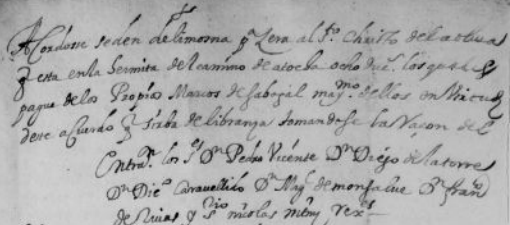 Acordosse se den de limosna pª Zera al Sto. Christo de la oliva
q esta en la hermita del camino de atocha ocho duº. los quales
pague de los Propios Marcos de Sabogal maymo. dellos en virtud
deste acuerdo q sirba de libranza tomandose la Raçon del
Entraron los Ss Dn Pedro Vicente Dn Diego de la torre
Dn Diego Caravellido Dn Maql de monsalue Dn franco
de Viuas y Srio nicolas mrn rex